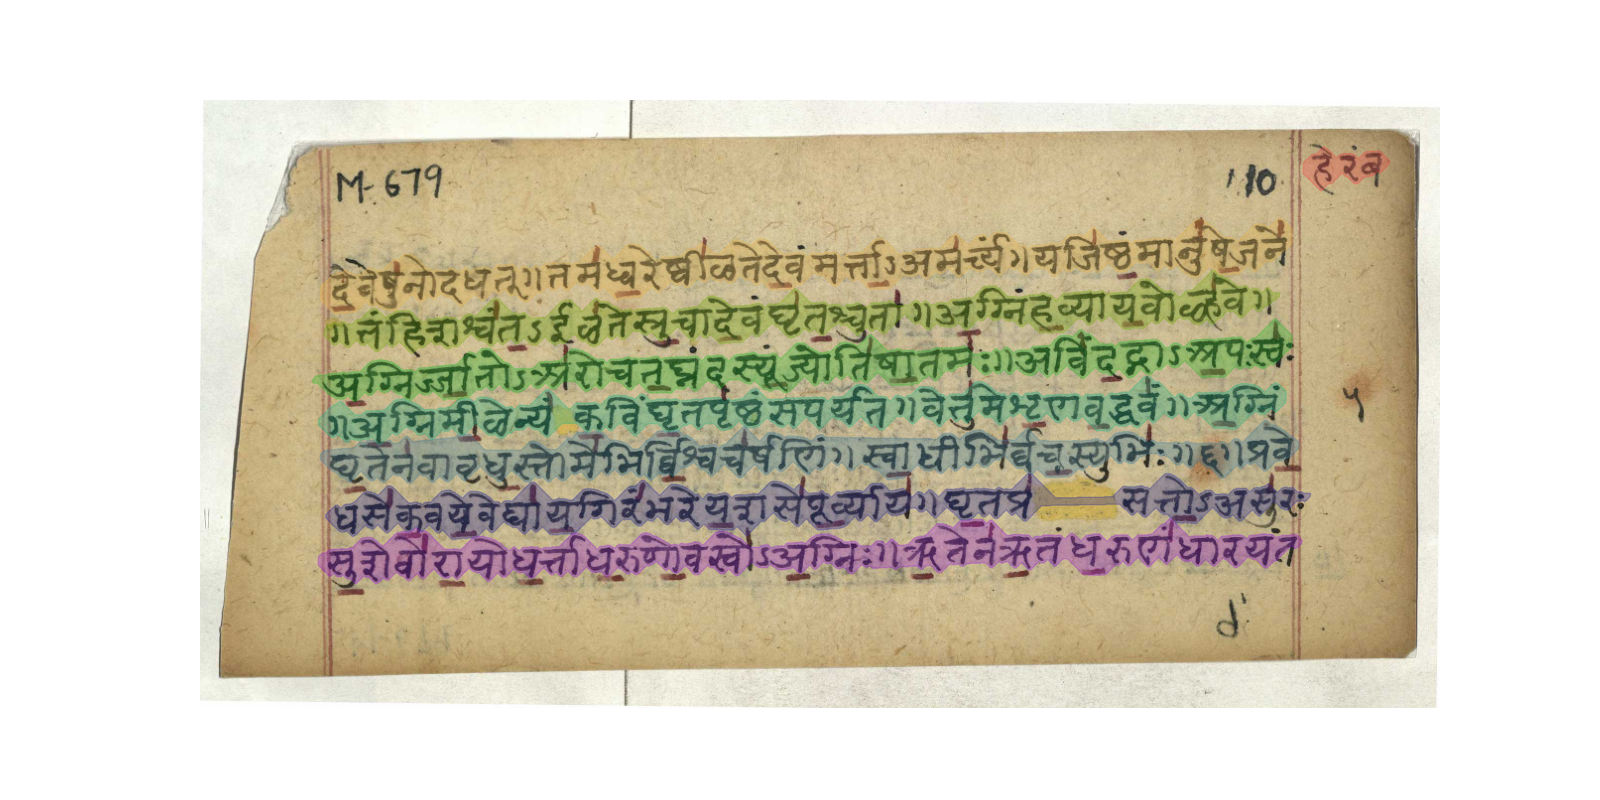 M. 679
110
हेरंब
देवेषुनोदधत्॥तमध्वरेष्वीळतेदेवंमर्त्ताऽअमर्त्यं।यजिष्ठंमानुषेजने
॥तंहिशश्वंतऽईळतेस्रुचादेवंघृतश्चुता॥अग्निंहव्यायवोळ्हवे॥
अग्निर्ज्जातोऽअरोचतघ्नंदस्यूञ्ज्योतिषातमः॥अविंदद्गाऽअपःस्वः
॥अग्निमीळेन्यं कविंघृतपृष्ठंसपर्यत॥वेतुमेशृणवद्धवं॥अग्निं
घृतेनवावृधुस्तोमेभिर्विश्वचर्षणिं॥स्वाधीभिर्वचस्युभिः॥६॥प्रवे
धसेकवयेवेद्यायगिरंभरेयशसेपूर्व्याय॥घृतप्र सत्तोऽअसुरः
सुशेवोरायोधर्त्ताधरुणोवस्वोऽअग्निः॥ऋतेनऋतंधरुणंधारयंत
५